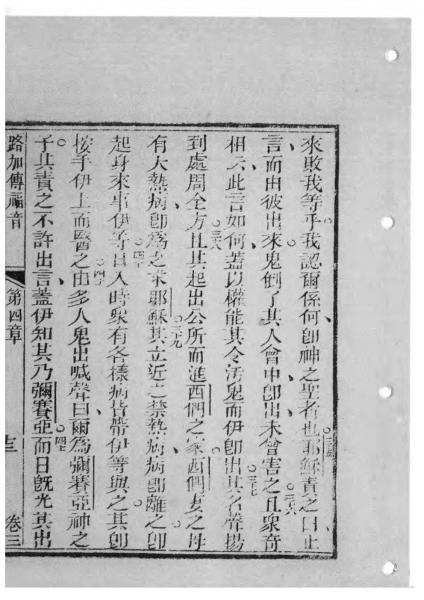 來敗我等乎我認爾係何卽神之聖者也耶穌責之曰止
言而由彼出來鬼倒了其人會中卽出未曾害之且眾竒
相云此言如何蓋以權能其令汚鬼而伊卽出其名聲揚
到處周全方且其起出公所而進西們之家西們妻之母
有大熱病卽為之求耶穌其立近之禁熱病病卽離之卽
起身來事伊等日入時眾有各樣病皆帶伊等與之其卽
按手伊上而醫之由多人鬼出喊聲曰爾為彌賽亞神之
子其責之不許出言蓋伊知其乃彌賽亞而日旣光其出
路加傳福音 第四章 卷三